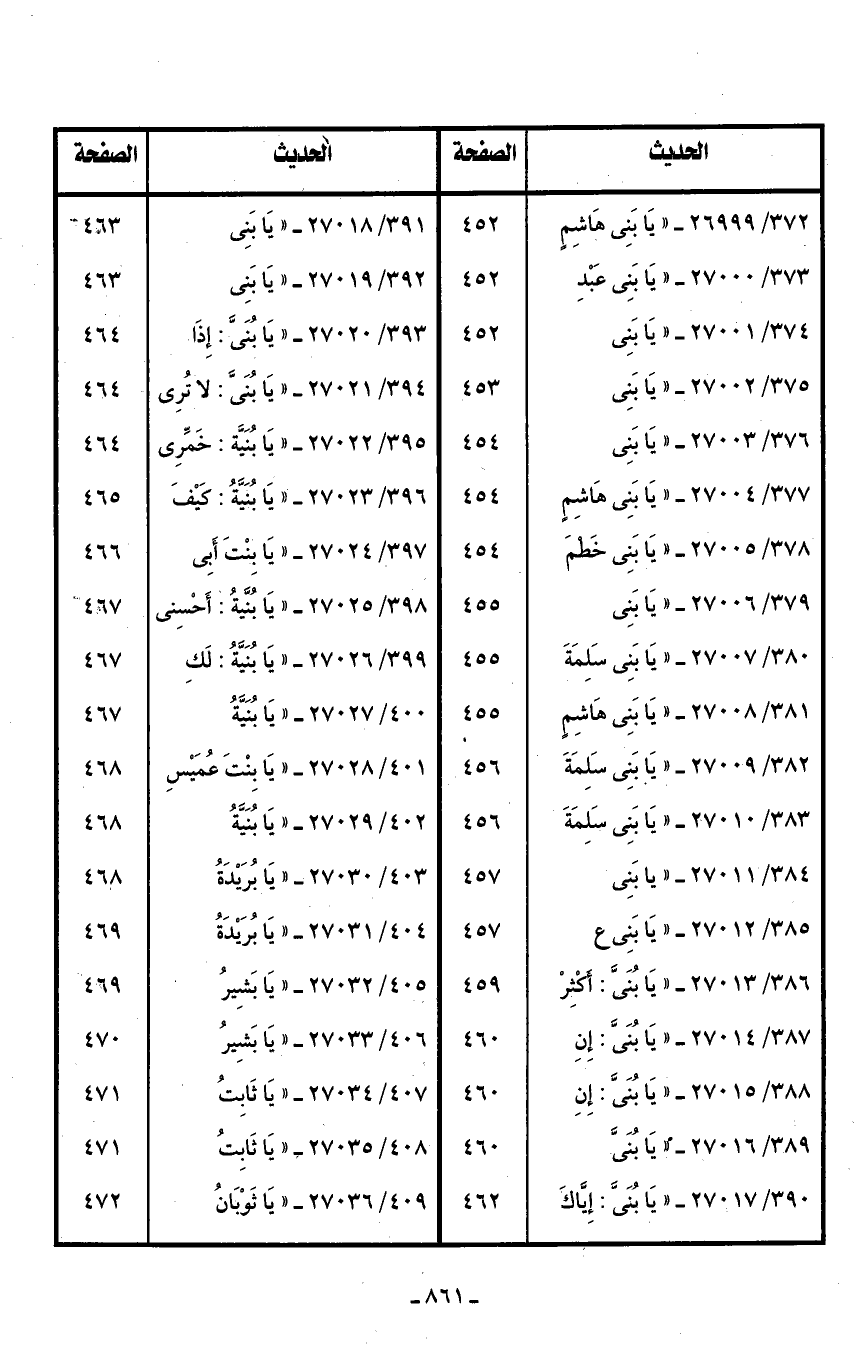 الحديث الصفحة الحديث الصفحة
٣٧٢/ ٢٦٩٩٩ ـ « يَا بَنِى هَاشِمٍ ٤٥٢ ٣٩١/ ٢٧٠١٨ ـ « يَا بَنِى ٤٦٣
٣٧٣/ ٢٧٠٠٠ ـ « يَا بَنِى عَبْدِ ٤٥٢ ٣٩٢/ ٢٧٠١٩ ـ « يَا بَنِى ٤٦٣
٣٧٤/ ٢٧٠٠١ ـ « يَا بَنِى ٤٥٢ ٣٩٣/ ٢٧٠٢٠ ـ « يَا بُنَىَّ : إِذَا ٤٦٤
٣٧٥/ ٢٧٠٠٢ ـ « يَا بَنِى ٤٥٣ ٣٩٤/ ٢٧٠٢١ ـ « يَا بُنَىَّ : لا تُرِى ٤٦٤
٣٧٦/ ٢٧٠٠٣ ـ « يَا بَنِى ٤٥٤ ٣٩٥/ ٢٧٠٢٢ ـ « يَا بُنَيَّة : خَمِّرِى ٤٦٤
٣٧٧/ ٢٧٠٠٤ ـ « يَا بَنِى هَاشِمٍ ٤٥٤ ٣٩٦/ ٢٧٠٢٣ ـ « يَا بُنَيَّةُ : كَيْفَ ٤٦٥
٣٧٨/ ٢٧٠٠٥ ـ « يَا بَنِى خَطْمَ ٤٥٤ ٣٩٧/ ٢٧٠٢٤ ـ « يَا بِنْتَ أَبِى ٤٦٦
٣٧٩/ ٢٧٠٠٦ ـ « يَا بَنِى ٤٥٥ ٣٩٨/ ٢٧٠٢٥ ـ « يَا بُنَّيةُ : أَحْسِنى ٤٦٧
٣٨٠/ ٢٧٠٠٧ ـ « يَا بَنِى سَلِمَةَ ٤٥٥ ٣٩٩/ ٢٧٠٢٦ ـ « يَا بُنَيَّةُ : لَكِ ٤٦٧
٣٨١/ ٢٧٠٠٨ ـ « يَا بَنِى هَاشِمٍ ٤٥٥ ٤٠٠/ ٢٧٠٢٧ ـ « يَا بُنَيَّةُ ٤٦٧
٣٨٢/ ٢٧٠٠٩ ـ « يَا بَنِى سَلِمَةَ ٤٥٦ ٤٠١/ ٢٧٠٢٨ ـ « يَا بِنْتَ عُمَيْسِ ٤٦٨
٣٨٣/ ٢٧٠١٠ ـ « يَا بَنِى سَلِمَةَ ٤٥٦ ٤٠٢/ ٢٧٠٢٩ ـ « يَا بُنَيَّةُ ٤٦٨
٣٨٤/ ٢٧٠١١ ـ « يا بَنِى ٤٥٧ ٤٠٣/ ٢٧٠٣٠ ـ « يَا بُرَيْدَةُ ٤٦٨
٣٨٥/ ٢٧٠١٢ ـ « يَا بَنِى ع ٤٥٧ ٤٠٤/ ٢٧٠٣١ ـ « يَا بُرَيْدَةُ ٤٦٩
٣٨٦/ ٢٧٠١٣ ـ « يَا بُنَىَّ : أَكْثِرْ ٤٥٩ ٤٠٥/ ٢٧٠٣٢ ـ « يَا بَشِيرُ ٤٦٩
٣٨٧/ ٢٧٠١٤ ـ « يَا بُنَىَّ : إِنِ ٤٦٠ ٤٠٦/ ٢٧٠٣٣ ـ « يَا بَشِيرُ ٤٧٠
٣٨٨/ ٢٧٠١٥ ـ « يَا بُنَىَّ : إِنِ ٤٦٠ ٤٠٧/ ٢٧٠٣٤ ـ « يَا ثَابِتُ ٤٧١
٣٨٩/ ٢٧٠١٦ ـ « يَا بُنَىَّ ٤٦٠ ٤٠٨/ ٢٧٠٣٥ ـ « يَا ثَابِتُ ٤٧١
٣٩٠/ ٢٧٠١٧ ـ « يَا بُنَىَّ : إِيَّاكَ ٤٦٢ ٤٠٩/ ٢٧٠٣٦ ـ « يَا ثَوْبَانُ ٤٧٢
ـ ٨٦١ ـ